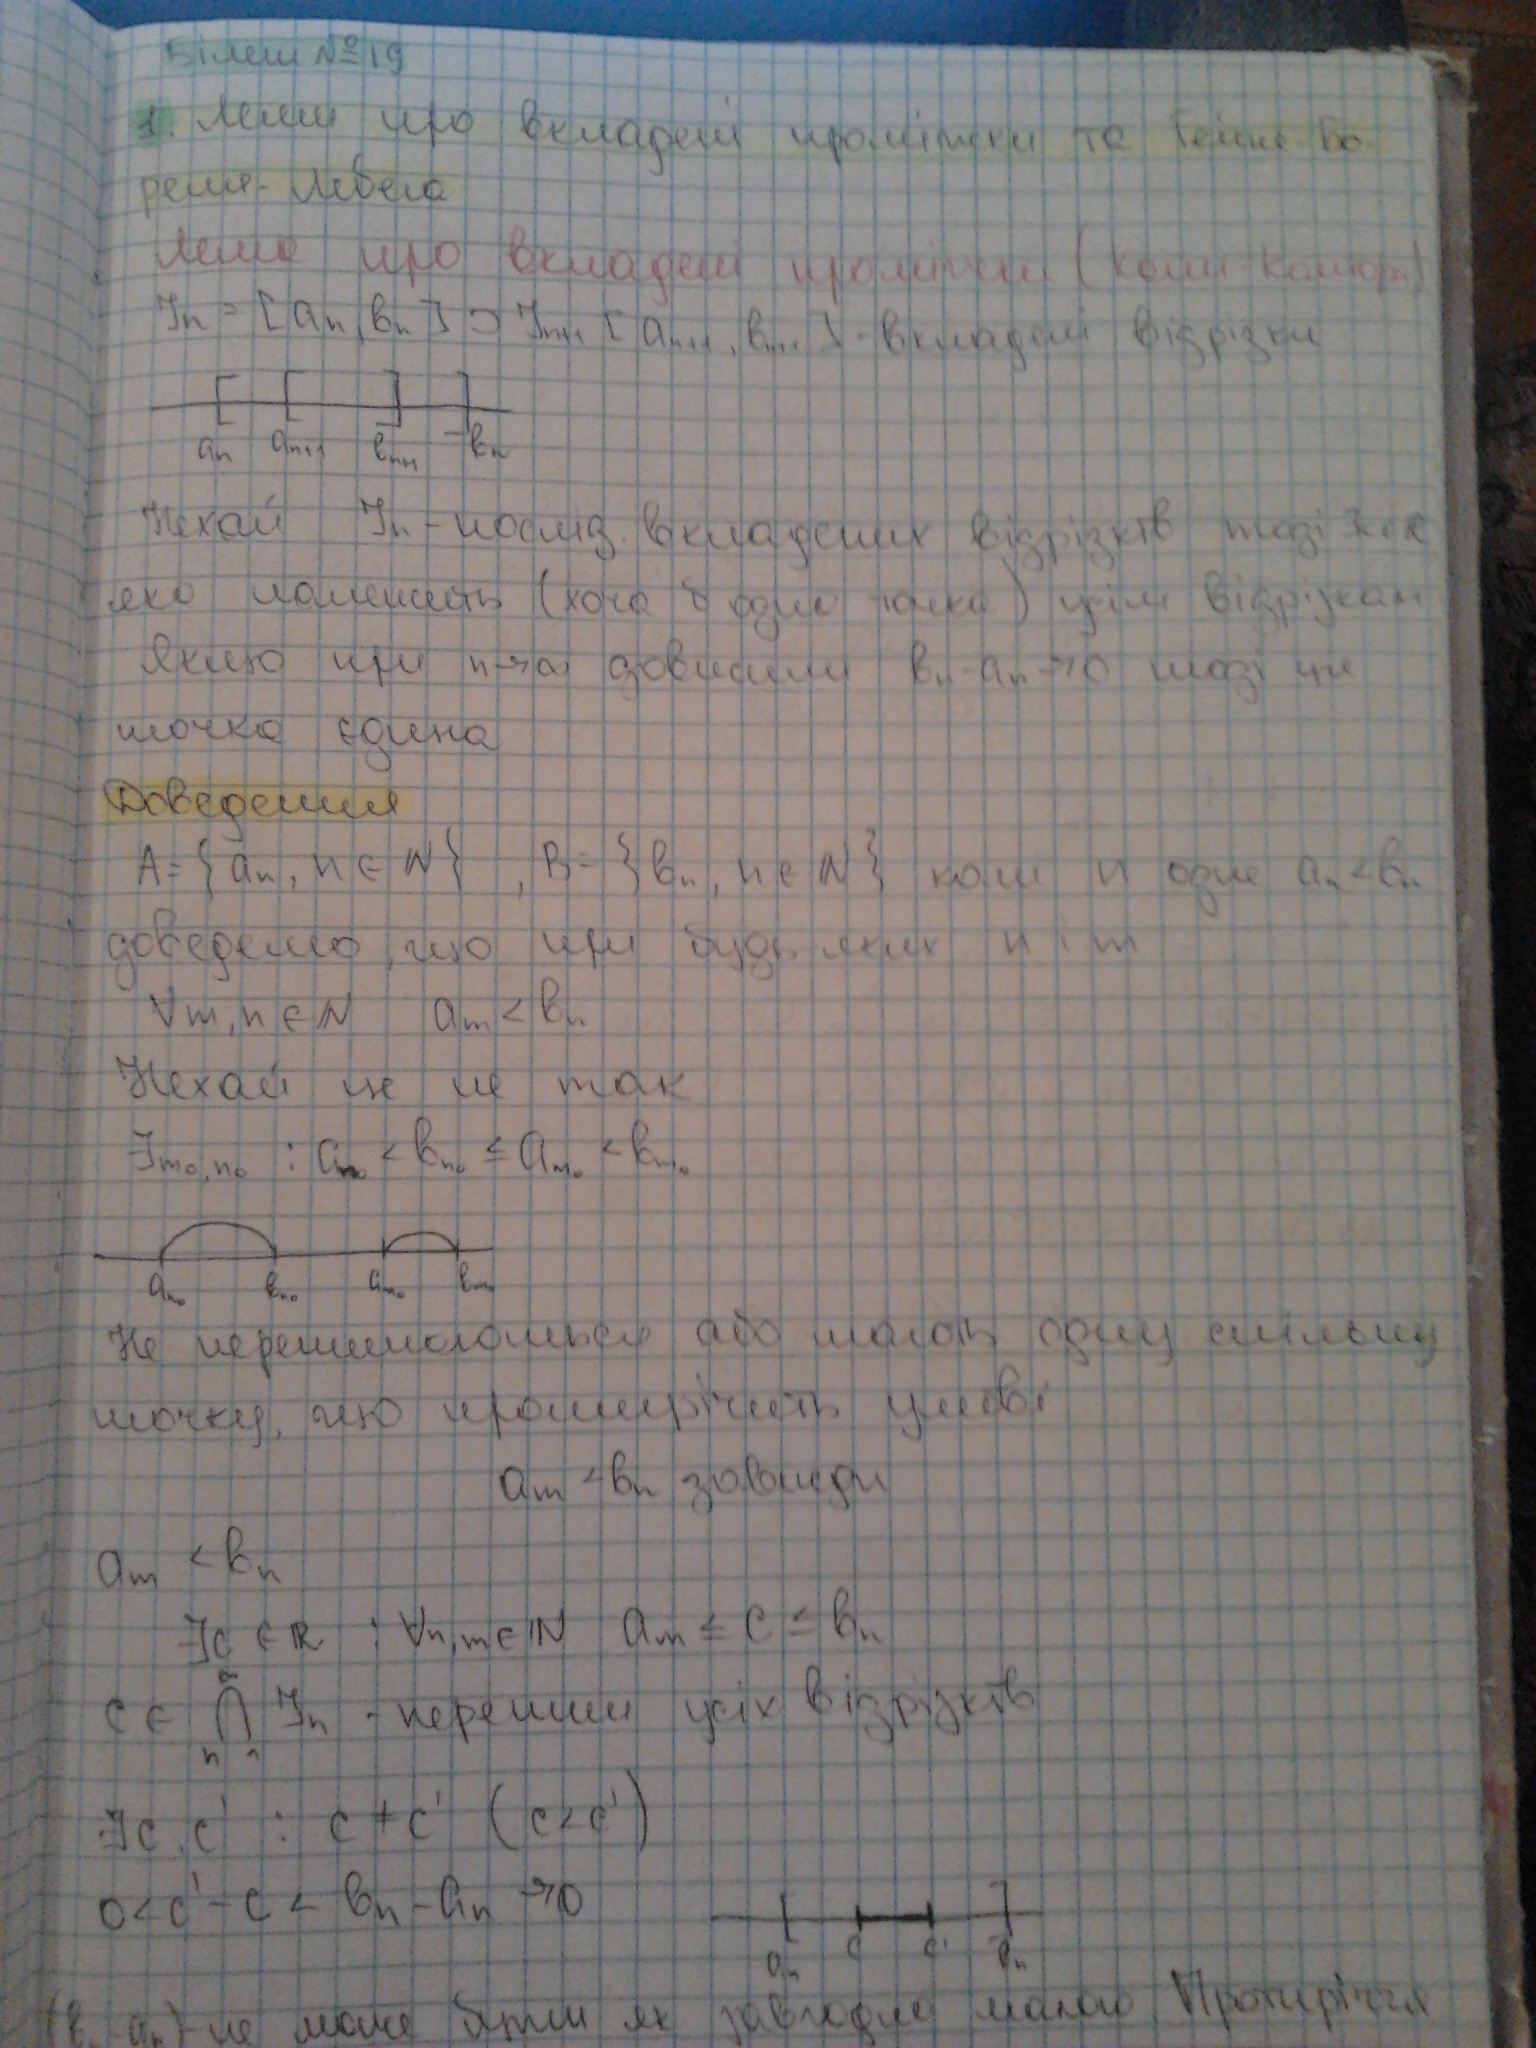 Білет №19
1. Леми про вкладені проміжки та Гейне-Бо-
реля-Лебега
Лема про вкладені проміжки (Коши-Кантора)
Jn = [an, bn] ⊃ Jn+1 [an+1, bn+1] - вкладені відрізки
an an+1 bn+1 bn
Нехай Jn - послід. вкладених відрізків тоді ∃c∈R
яка належить (хоча б одна точка) усім відрізкам
Якщо при n→∞ довжини bn-an→0 тоді ця
точка єдина
Доведення
A={an, n∈N}, B={bn, n∈N} коли n одне an<bn
доведемо, що при будь-яких n і m
∀m,n∈N am<bn
Нехай це не так
∃m₀,n₀ : an₀ < bn₀ ≤ am₀ < bm₀
an₀ bn₀ am₀ bm₀
Не перетинаються або мають одну спільну
точку, що протирічить умові
am < bn завжди
am < bn
∃c∈R : ∀n,m∈N am ≤ c ≤ bn
c ∈ ⋂ Jn - перетин усіх відрізків
∃c,c' : c≠c' (c<c')
0<c'-c< bn-an →0
an c c' bn
(bn-an) - не може бути як завгодно малою Протиріччя